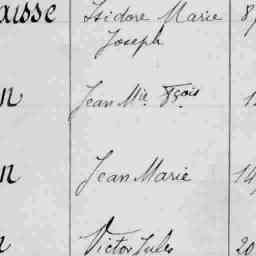 aisse Isidore Marie 8
Joseph
n Jean Mie Fçois 1
n Jean Marie 14
Victor Jules 20